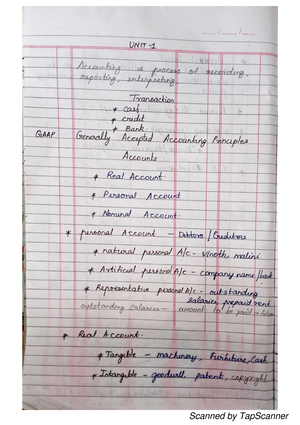 UNIT-1
Accounting is process of recording,
reporting, interpreting.
Transaction
* cash
* credit
* Bank
GAAP Generally Accepted Accounting Principles
Accounts
* Real Account
* Personal Account
* Nominal Account
* personal Account - Debtors / Creditors
* natural personal A/c - vinoth, malini
* Artificial personal A/c - company name, bank
* Representative personal A/c - outstanding
salaries, prepaid rent
outstanding salaries - amount to be paid in future
* Real Account.
* Tangible - machinery, Furniture, Cash
* Intangible - goodwill patent, copyright
Scanned by TapScanner